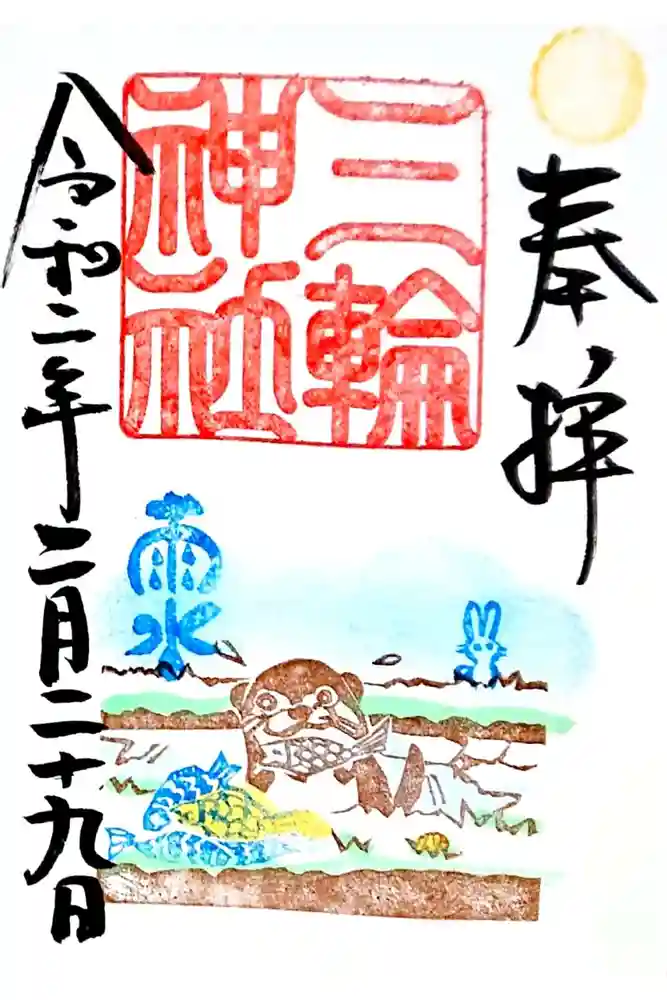 奉拝
三輪
神社
雨水
令和二年二月二十九日